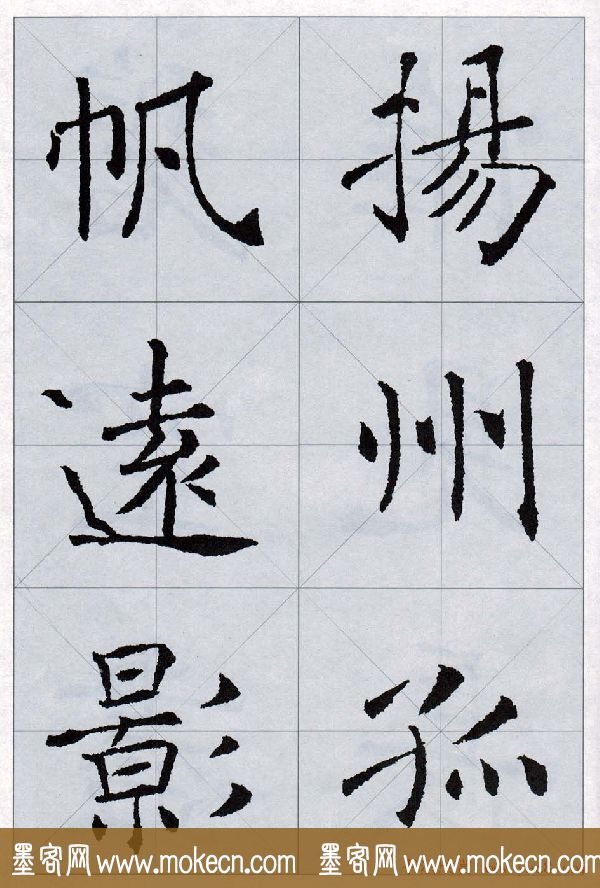 揚州孤
帆遠影
墨客网 www.mokecn.com 墨客网 www.mokecn.com